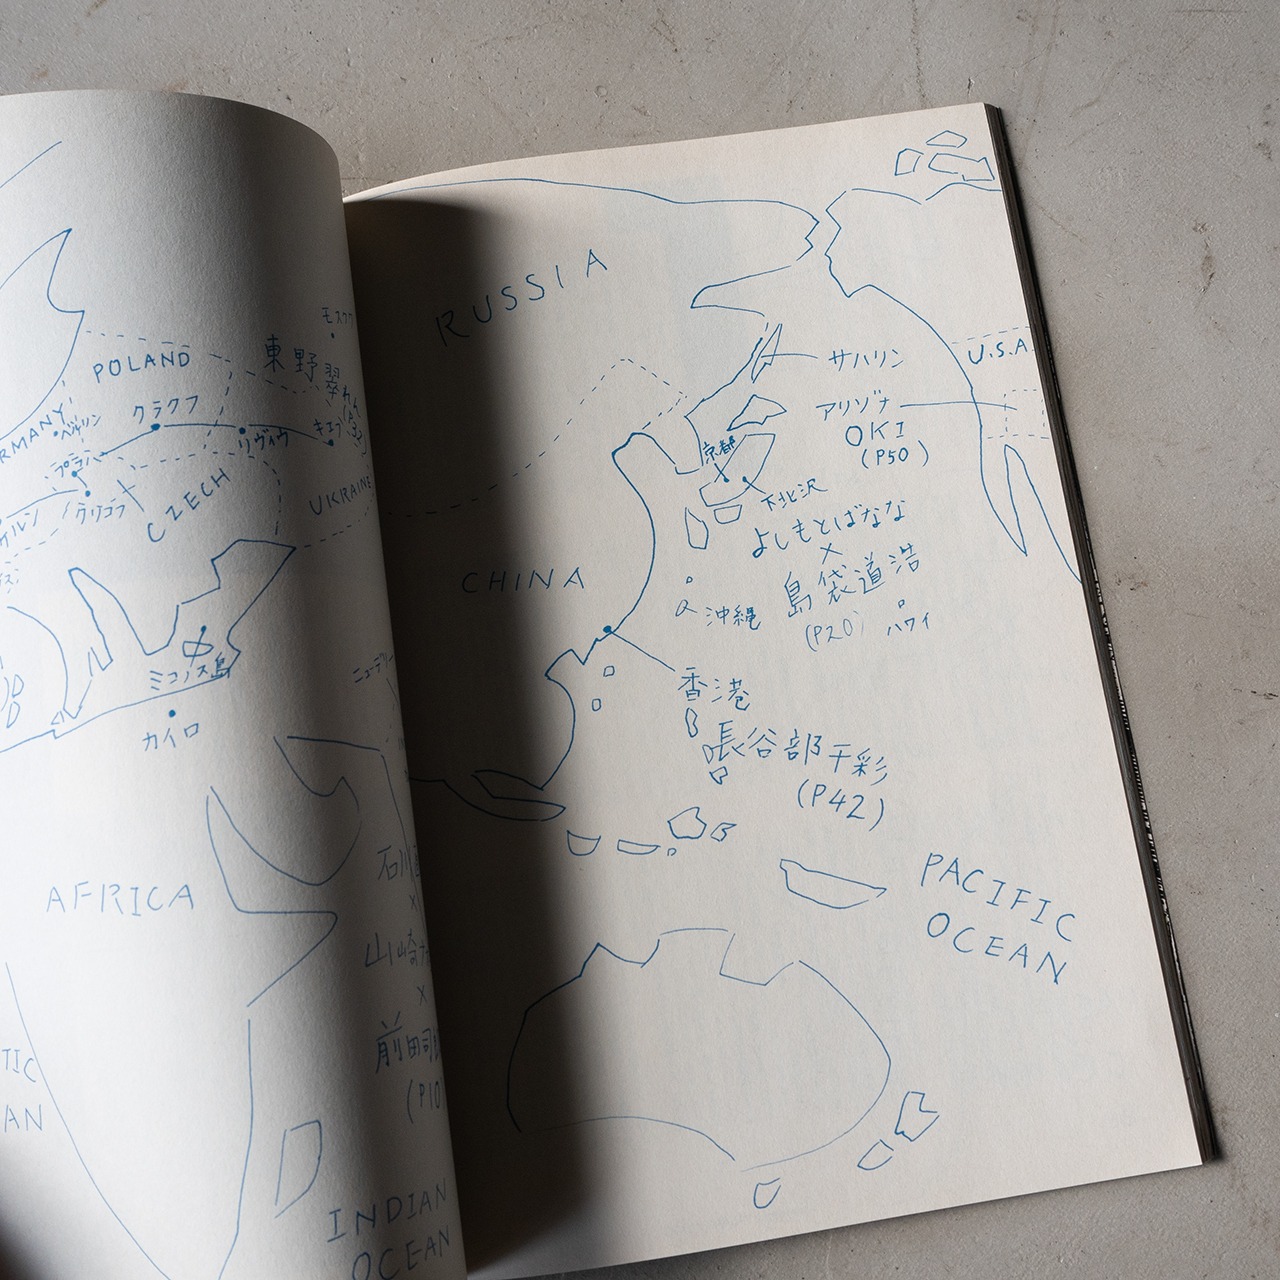 POLAND
モスクワ
東野
翠れん
クラクフ
リヴィウ
キエフ
ベルリン
プラハ
クリコフ
ケルン
CZECH
UKRAINE
ミコノス島
カイロ
ニューデリー
AFRICA
石川
×
山崎
×
前田司
(P10
INDIAN
OCEAN
RUSSIA
サハリン
U.S.A
アリゾナ
OKI
(P50)
京都
下北沢
よしもとばなな
×
島袋道浩
(P20)
ハワイ
CHINA
沖縄
香港
長谷部千彩
(P42)
PACIFIC
OCEAN